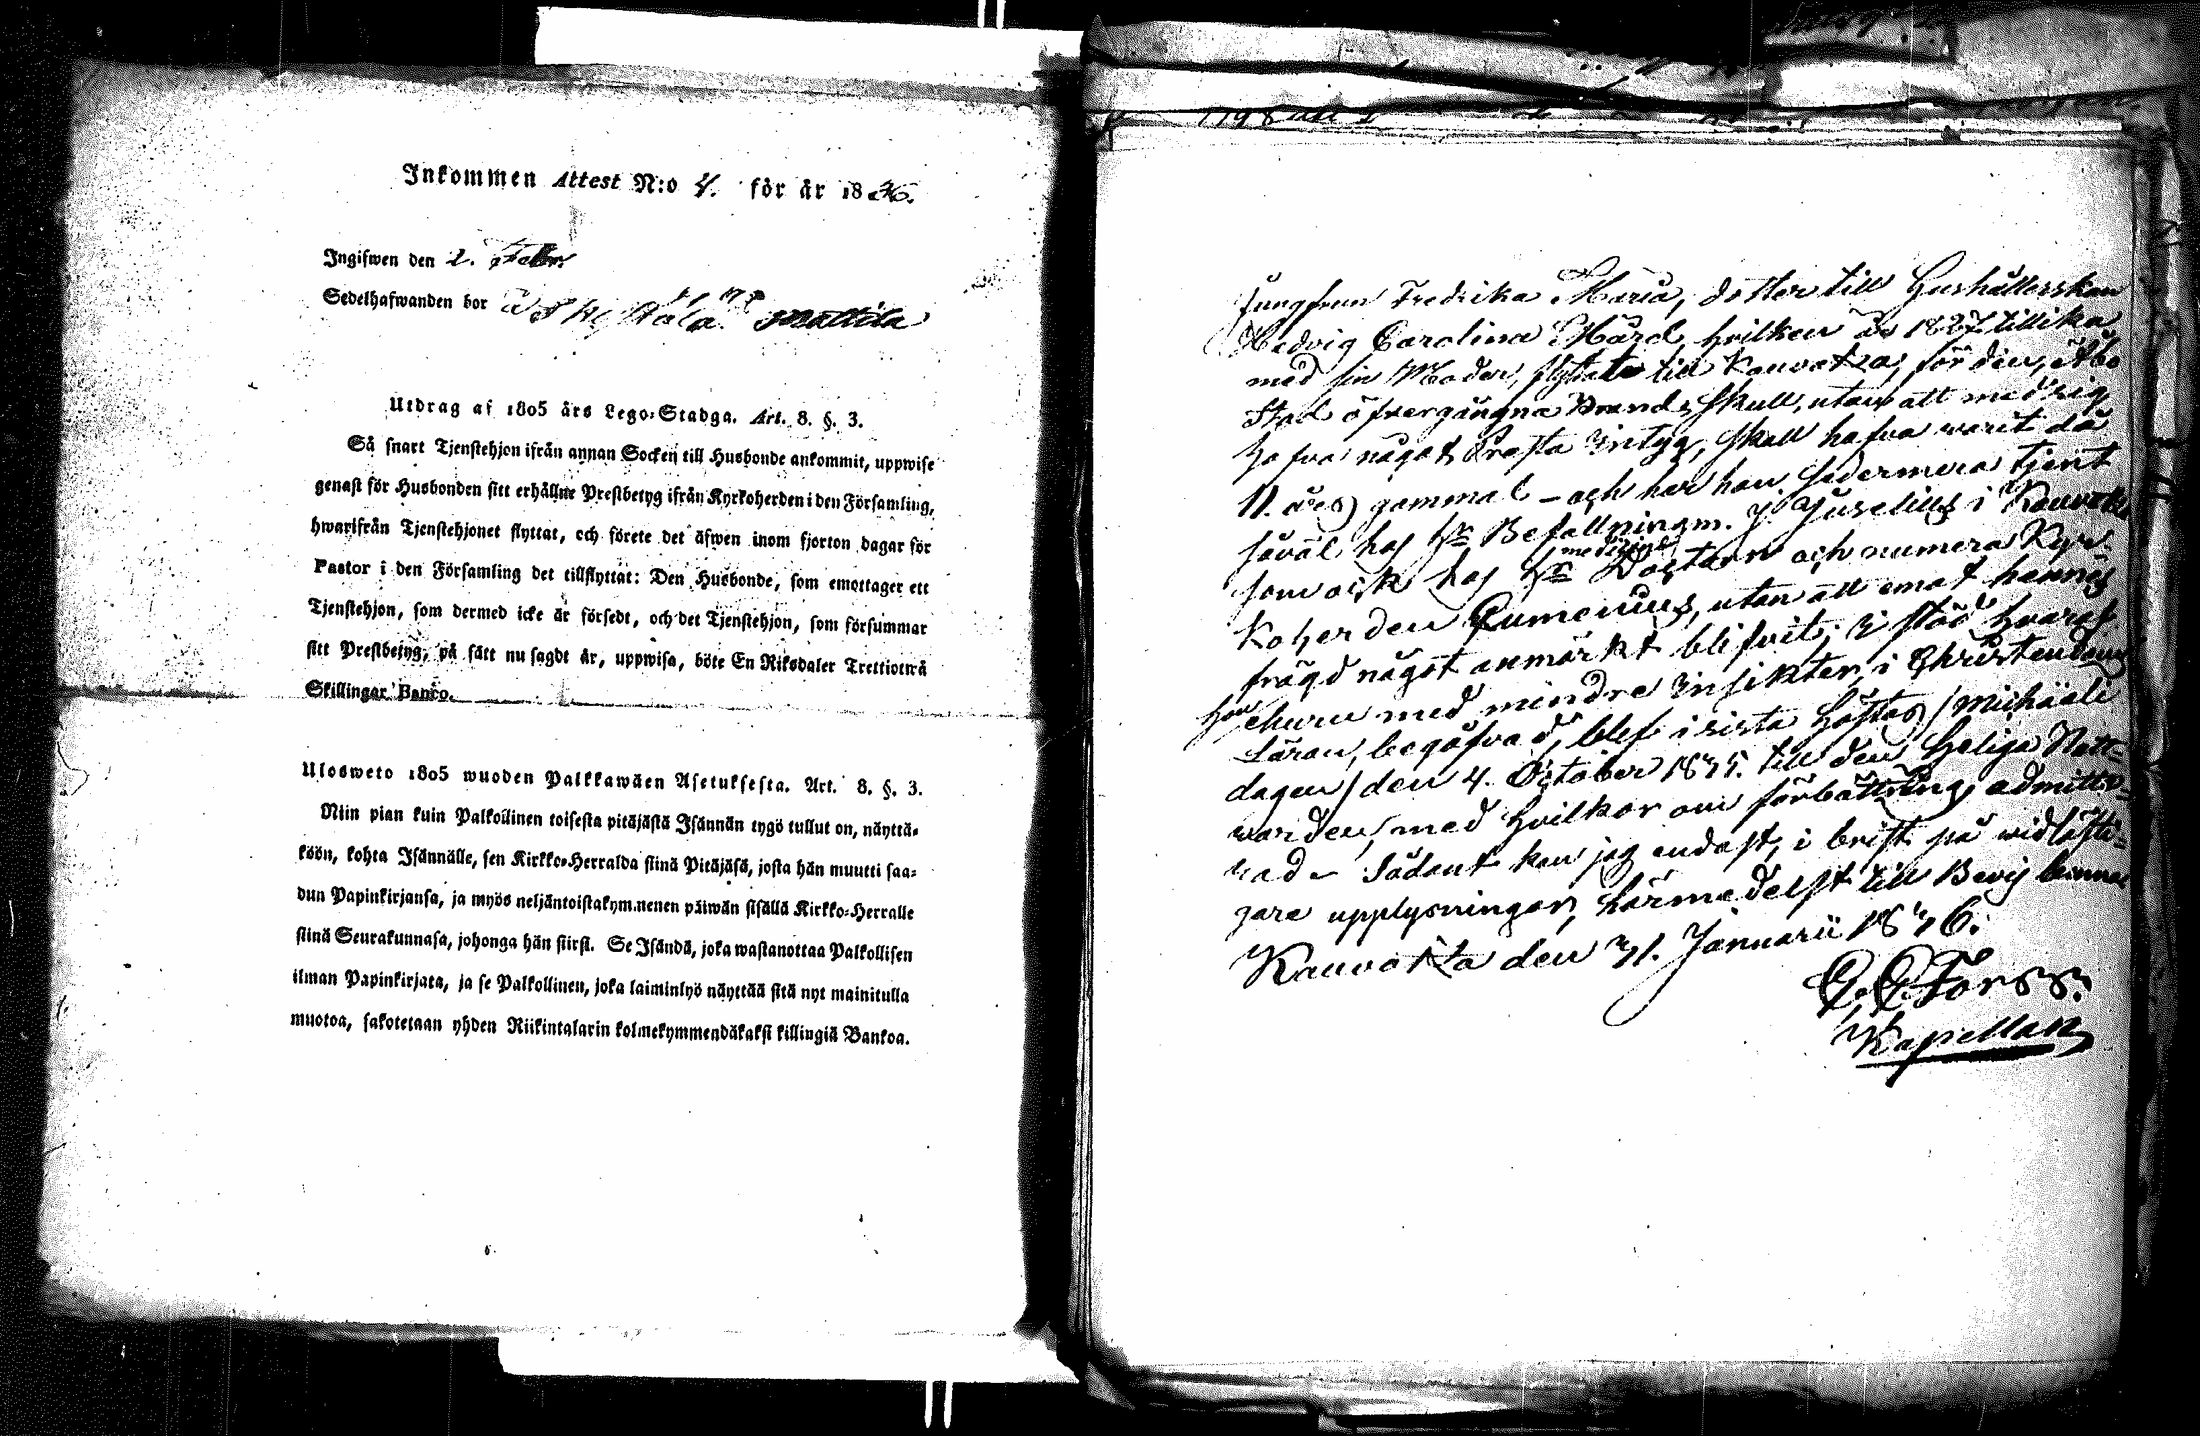 Inkommen Attest N:o 4. för år 1836.
Ingifwen den 2. Febr.
Sedelhafwanden bor å Mattila
Utdrag af 1805 års Lego-Stadga. Art. 8. §. 3.
Så snart Tjenstehjon ifrån annan Socken till Husbonde ankommit, uppwise
genast för Husbonden sitt erhållne Prestbetyg ifrån Kyrkoherden i den Församling,
hwarifrån Tjenstehjonet flyttat, och förete det äfwen inom fjorton dagar för
Pastor i den Församling det tillflyttat: Den Husbonde, som emottager ett
Tjenstehjon, som dermed icke är försedt, och det Tjenstehjon, som försummar
sitt Prestbetyg, på sätt nu sagdt är, uppwisa, böte En Riksdaler Trettiotwå
Skillingar Banco.
Ulosweto 1805 wuoden Palkkawäen Asetuksesta. Art. 8. §. 3.
Niin pian kuin Palkollinen toisesta pitäjästä Isännän tygö tullut on, näyttä-
köön, kohta Isännälle, sen Kirkko-Herralda siinä Pitäjäsä, josta hän muutti saa-
dun Papinkirjansa, ja myös neljäntoistakymmenen päiwän sisällä Kirkko-Herralle
siinä Seurakunnasa, johonga hän siirsi. Se Isändä, joka wastanottaa Palkollisen
ilman Papinkirjata, ja se Palkollinen, joka laiminlyö näyttää sitä nyt mainitulla
muotoa, sakotetaan yhden Riikintalarin kolmekymmendäkaksi killingiä Bankoa.
1798
Jungfrun Fredrika Maria, dotter till Hushållerskan
Hedvig Carolina Mård, hvilken år 1827 tillika
med sin Moder, flyttate till Kauvatza, för den, Åbo
Stad öfvergångna Brands skull, utan att med sig
hafva något Prästa Intyg, skall hafva warit då
11. års gammal - och har hon sedermera tjent
såväl hos Hr Befallningm. J. Juselius i Kauvatza
som ock hos Hr medicine Doctorn och numera Kyr-
koherden Eumenius, utan att emot hennes
frägd något anmärkt blifvit; i stöd hvaraf
hon ehuru med mindre insikter i Christendoms
Läran, begåfvad, blef i sista höstas / Michaeli
dagen / den 4. October 1835. till den Heliga Natt-
varden, med hvilkor om förbättring, admitte-
rad - Sådant kan jag endast, i brist på widlöfti-
gare upplysningar, härmedelst till Bevis lemna
Kauvatza den 31. Januarii 1836.
Forss.
Kapellan